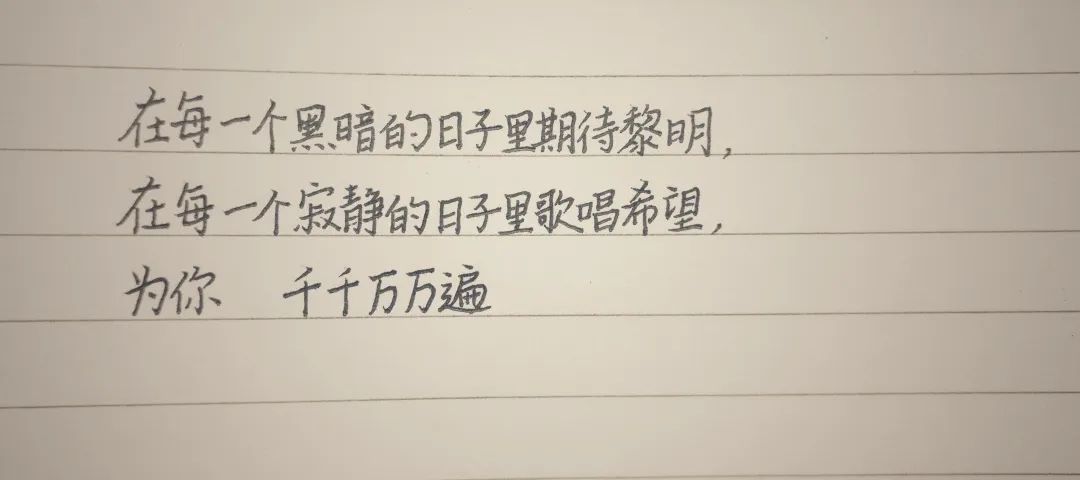 在每一个黑暗的日子里期待黎明，
在每一个寂静的日子里歌唱希望，
为你　千千万万遍